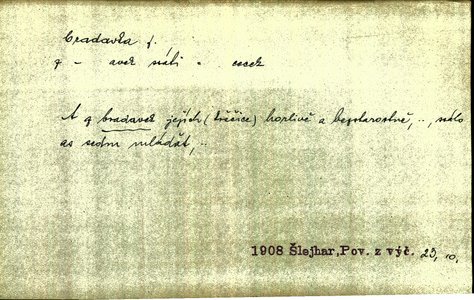 bradavka f.
z - avek sáti - cecek
A z bradavek jejich (třěšice) horlivě a bezstarostně, .., sálo
as sedm mláďat, ..
1908 Šlejhar, Pov. z výč. 23, 10.